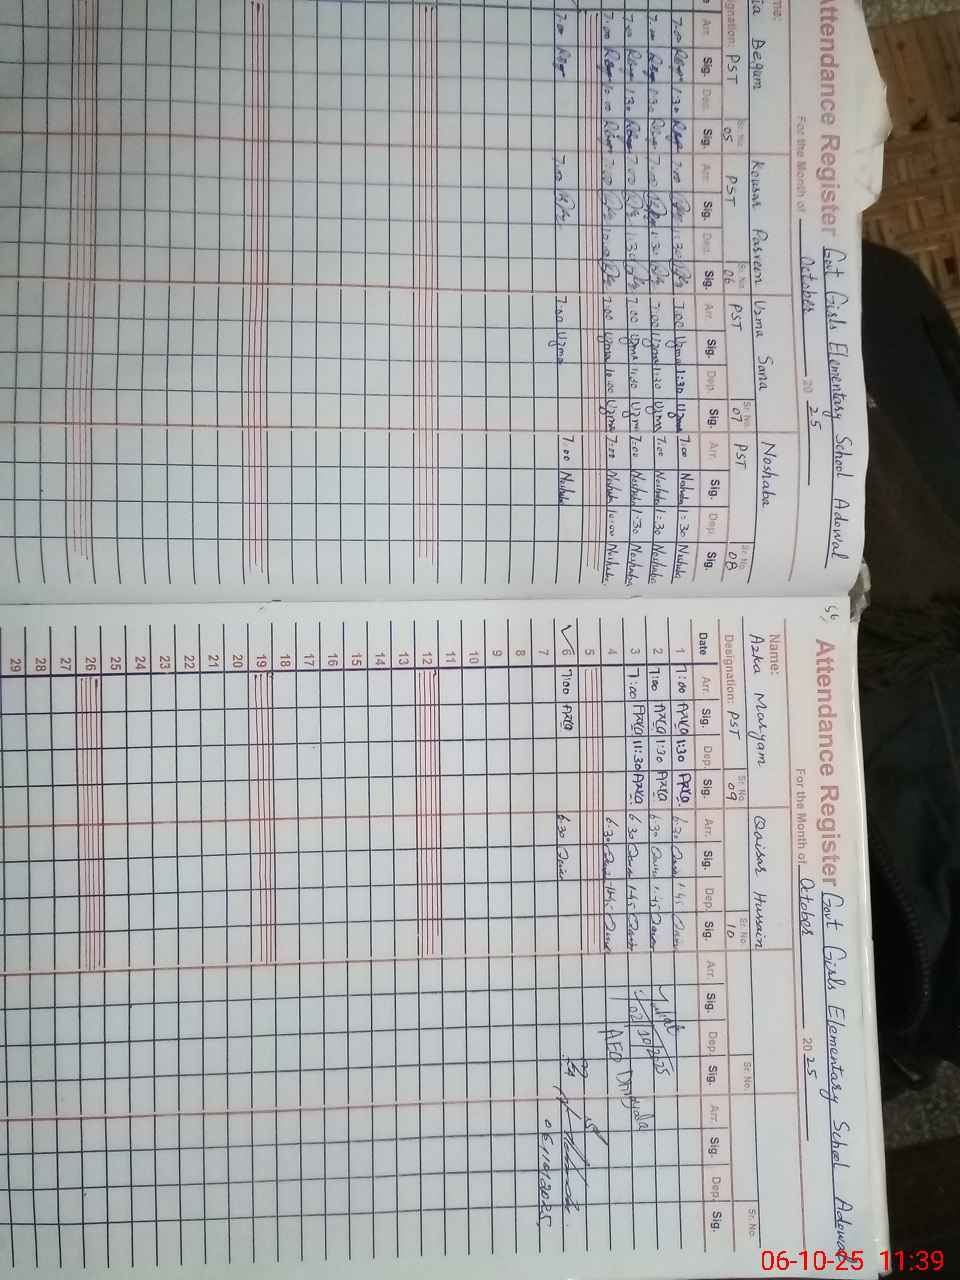 Attendance Register Govt Girls Elementary School Adowal
For the Month of October 20 25
Begum Kousar Parveen Uzma Sana Noshaba
Designation: PST Sr. No. 05 PST Sr. No. 06 PST Sr. No. 07 PST Sr. No. 08
Arr. Sig. Dep. Sig. Arr. Sig. Dep. Sig. Arr. Sig. Dep. Sig. Arr. Sig. Dep. Sig.
7:00 1:30 7:00 1:30 7:00 Uzma 1:30 Uzma 7:00 Noshaba 1:30 Noshaba
7:00 1:30 7:00 1:30 7:00 Uzma 1:30 Uzma 7:00 Noshaba 1:30 Noshaba
7:00 1:30 7:00 1:30 7:00 Uzma 1:30 Uzma 7:00 Noshaba 1:30 Noshaba
7:00 10:00 7:00 10:00 7:00 Uzma 10:00 Uzma 7:00 Noshaba 10:00 Noshaba
7:00 7:00 7:00 Uzma 7:00 Noshaba
Attendance Register Govt Girls Elementary School Adowal
For the Month of October 20 25
Name: Azka Maryam Qaisar Hussain
Designation: PST Sr. No. 09 Sr. No. 10 Sr. No. Sr. No.
Date Arr. Sig. Dep. Sig. Arr. Sig. Dep. Sig. Arr. Sig. Dep. Sig. Arr. Sig. Dep. Sig.
1 7:00 Azka 1:30 Azka 6:30 1:45
2 7:00 Azka 1:30 Azka 6:30 1:45
3 7:00 Azka 11:30 Azka 6:30 1:45
02/10/2025
4 6:30 1:45
AEO
5
6 7:00 Azka 6:30
7
06/10/2025
8
9
10
11
12
13
14
15
16
17
18
19
20
21
22
23
24
25
26
27
28
29
06-10-25 11:39